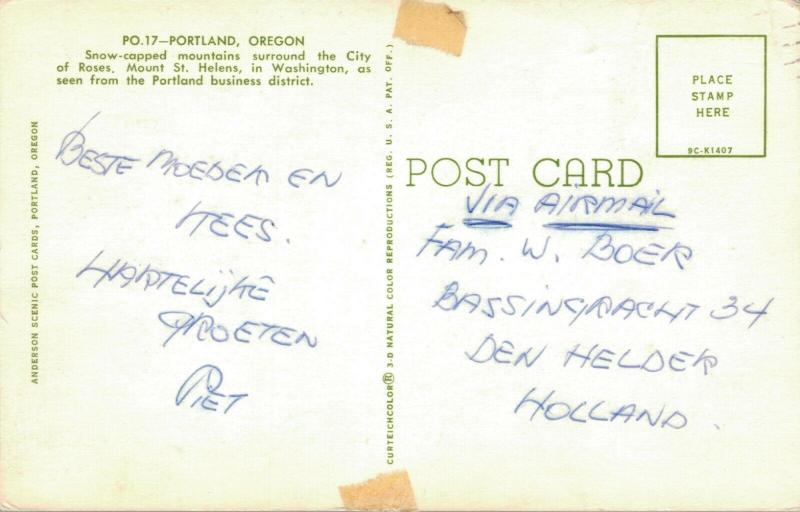 PO.17—PORTLAND, OREGON
Snow-capped mountains surround the City
of Roses. Mount St. Helens, in Washington, as
seen from the Portland business district.
BESTE MOEDER EN
KEES.
HARTELIJKE
GROETEN
PIET
ANDERSON SCENIC POST CARDS, PORTLAND, OREGON
CURTEICHCOLOR® 3-D NATURAL COLOR REPRODUCTIONS (REG. U. S. A. PAT. OFF.)
PLACE
STAMP
HERE
9C-K1407
POST CARD
VIA AIRMAIL
FAM. W. BOER
BASSINGRACHT 34
DEN HELDER
HOLLAND.